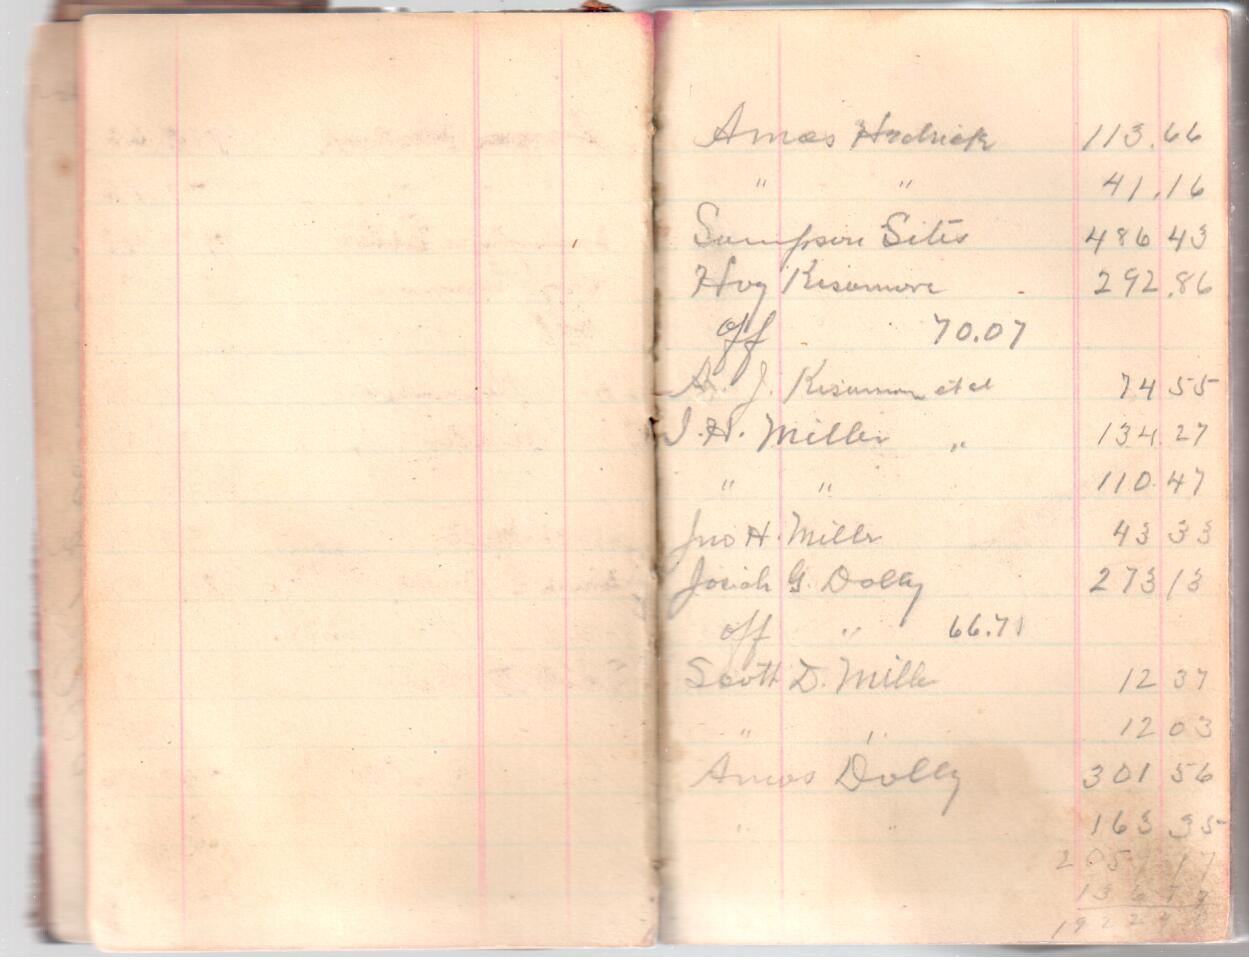 Amos Hedrick 113.66
" " 41.16
Sampson Sites 486 43
Hoy Kisamore 292.86
off 70.07
A. J. Kisamore et al 74 55
I. H. Miller " 134.27
" " 110.47
Jno H. Miller 43 33
Josiah G. Dolly 273 13
off " 66.71
Scott D. Miller 12 37
" " 12 03
Amos Dolly 301 56
" " 163 35
2059 17
136
1922